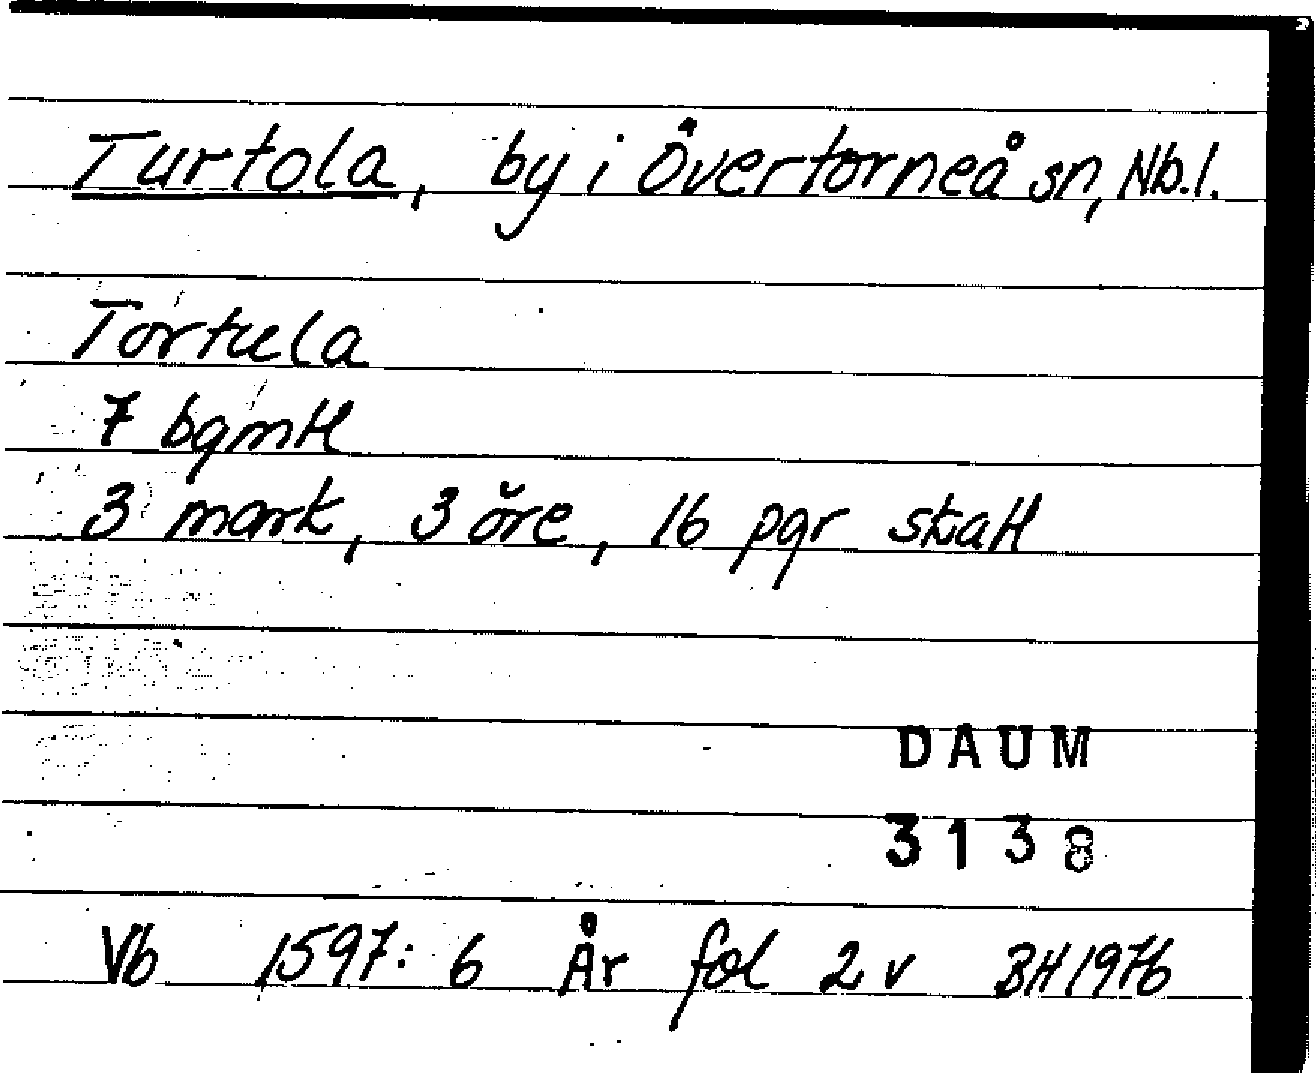 Turtola, by i Övertorneå sn, Nb.l.
Tortula
7 bgmtl
3 mark, 3 öre, 16 pgr skatt
DAUM
3138
Vb 1597: 6 År fol 2 v BH 1976